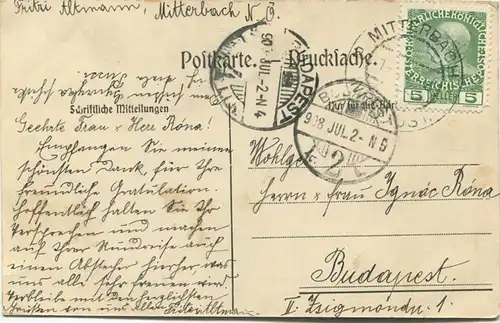 Fritzi Altmann, Mitterbach N. Ö.
Postkarte. — Drucksache.
Schriftliche Mitteilungen
Nur für die
Geehrte Frau & Herr Róna!
Empfangen Sie meinen
schönsten Dank, für Ihre
freundliche Gratulation.
Hoffentlich halten Sie Ihr
Versprechen und machen
auf Ihrer Rundreise auch
einen Abstecher hierher was
uns alle sehr freuen wird.
Verbleibe mit den herzlichsten
Grüßen von uns Allen Fritzi Altmann
Wohlgeb
Herrn & Frau Ignác Róna
Budapest.
II. Zsigmond u. 1.
MITTERBACH
5 5
BUDAPEST
908 JUL. 2 - N 4
BUDAPEST
908 JUL. 2 - N 5